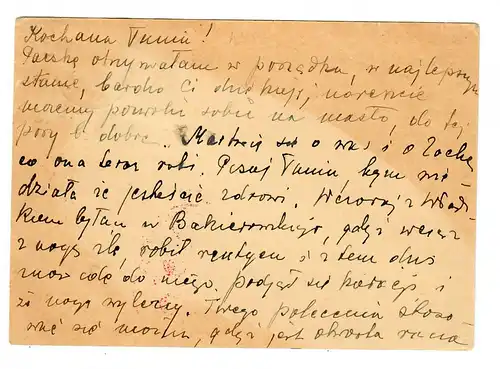 Kochana Tuniu!
Paczkę otrzymałam w porządku, w najlepszym
stanie, bardzo Ci dziękuję, nareszcie
możemy pozwolić sobie na masło, do tej
pory b. dobre. Martwię się o was i o Zochę
co ona teraz robi. Pisuj Tuniu bym wie-
działa że jesteście zdrowi. Wczoraj z Wład-
kiem byłam w Bakierowskiego, gdyż wciąż
z nogą źle, robił rentgen i z tem dziś
mam iść do niego. podjął się kuracji i
że nogę wyleczy. Twego polecenia stoso-
wać się można, gdyż jest otwarta rana